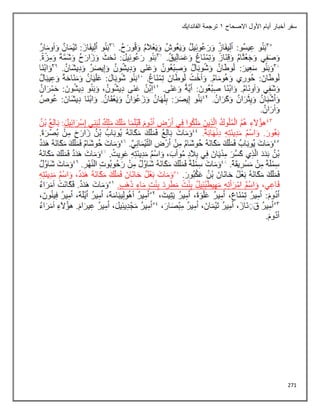 سفر أخبار أيام الأول الاصحاح ١ ترجمة الفاندايك
٣٥بَنُو عِيسُو: أَلِيفَازُ وَرَعُوئِيلُ وَيَعُوشُ وَيَعْلاَمُ وَقُورَحُ. ٣٦بَنُو أَلِيفَازَ: تَيْمَانُ وَأُومَارُ
وَصَفِي وَجَعْثَامُ وَقَنَازُ وَتِمْنَاعُ وَعَمَالِيقُ. ٣٧بَنُو رَعُوئِيلَ: نَحَثُ وَزَارَحُ وَشَمَّةُ وَمِزَّةُ.
٣٨وَبَنُو سَعِيرَ: لُوطَانُ وَشُوبَالُ وَصِبْعُونُ وَعَنَى وَدِيشُونُ وَإِيصَرُ وَدِيشَانُ. ٣٩وَابْنَا
لُوطَانَ: حُورِي وَهُومَامُ. وَأُخْتُ لُوطَانَ تِمْنَاعُ. ٤٠بَنُو شُوبَالَ: عَلْيَانُ وَمَنَاحَةُ وَعِيبَالُ
وَشَفِي وَأُونَامُ. وَابْنَا صِبْعُونَ: أَيَّةُ وَعَنَى. ٤١اِبْنُ عَنَى دِيشُونُ، وَبَنُو دِيشُونَ: حَمْرَانُ
وَأَشْبَانُ وَيِثْرَانُ وَكَرَانُ. ٤٢بَنُو إِيصَرَ: بِلْهَانُ وَزَعْوَانُ وَيَعْقَانُ. وَابْنَا دِيشَانَ: عُوصُ
وَأَرَانُ.
٤٣هؤُلاَءِ هُمُ الْمُلُوكُ الَّذِينَ مَلَكُوا فِي أَرْضِ أَدُومَ قَبْلَمَا مَلَكَ مَلِكٌ لِبَنِي إِسْرَائِيلَ: بَالِعُ بْنُ
بَعُورَ. وَاسْمُ مَدِينَتِهِ دِنْهَابَةُ. ٤٤وَمَاتَ بَالِعُ فَمَلَكَ مَكَانَهُ يُوبَابُ بْنُ زَارَحَ مِنْ بُصْرَةَ.
٤٥وَمَاتَ يُوبَابُ فَمَلَكَ مَكَانَهُ حُوشَامُ مِنْ أَرْضِ التَّيْمَانِيِّ. ٤٦وَمَاتَ حُوشَامُ فَمَلَكَ مَكَانَهُ هَدَدُ
بْنُ بَدَدَ الَّذِي كَسَّرَ مِدْيَانَ فِي بِلاَدِ مُوآبَ، وَاسْمُ مَدِينَتِهِ عَوِيتُ. ٤٧وَمَاتَ هَدَدُ فَمَلَكَ مَكَانَهُ
سَمْلَةُ مِنْ مَسْرِيقَةَ. ٤٨وَمَاتَ سَمْلَةُ فَمَلَكَ مَكَانَهُ شَاوُلُ مِنْ رَحُوبُوتِ النَّهْرِ. ٤٩وَمَاتَ شَاوُلُ
فَمَلَكَ مَكَانَهُ بَعْلُ حَانَانَ بْنُ عَكْبُورَ. ٥٠وَمَاتَ بَعْلُ حَانَانَ فَمَلَكَ مَكَانَهُ هَدَدُ، وَاسْمُ مَدِينَتِهِ
فَاعِي، وَاسْمُ امْرَأَتِهِ مَهِيطَبْئِيلُ بِنْتُ مَطْرِدَ بِنْتِ مَاءِ ذَهَبٍ. ٥١وَمَاتَ هَدَدُ. فَكَانَتْ أُمَرَاءُ
أَدُومَ: أَمِيرُ تِمْنَاعَ، أَمِيرُ عَلْوَةَ، أَمِيرُ يَتِيتَ، ٥٢أَمِيرُ أُهُولِيبَامَةَ، أَمِيرُ أَيْلَةَ، أَمِيرُ فِينُونَ،
٥٣أَمِيرُ قَنَازَ، أَمِيرُ تَيْمَانَ، أَمِيرُ مِبْصَارَ، ٥٤أَمِيرُ مَجْدِيئِيلَ، أَمِيرُ عِيرَامَ. هؤُلاَءِ أُمَرَاءُ
أَدُومَ.
271